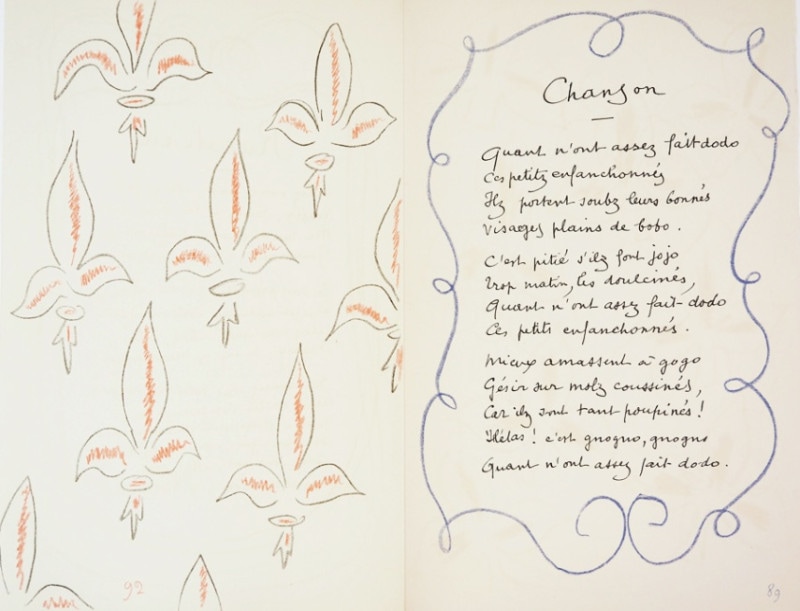 92
Chanson
Quant n'ont assez fait dodo
Ces petitz enfanchonnés
Ilz portent soubz leurs bonnés
Visages plains de bobo.
C'est pitié s'ilz font jojo
Trop matin, les doulcinés,
Quant n'ont assez fait dodo
Ces petits enfanchonnés.
Mieux amassent à gogo
Gésir sur molz coussinés,
Car ilz sont tant poupinés!
Hélas! c'est gnogno, gnogno
Quant n'ont assez fait dodo.
89